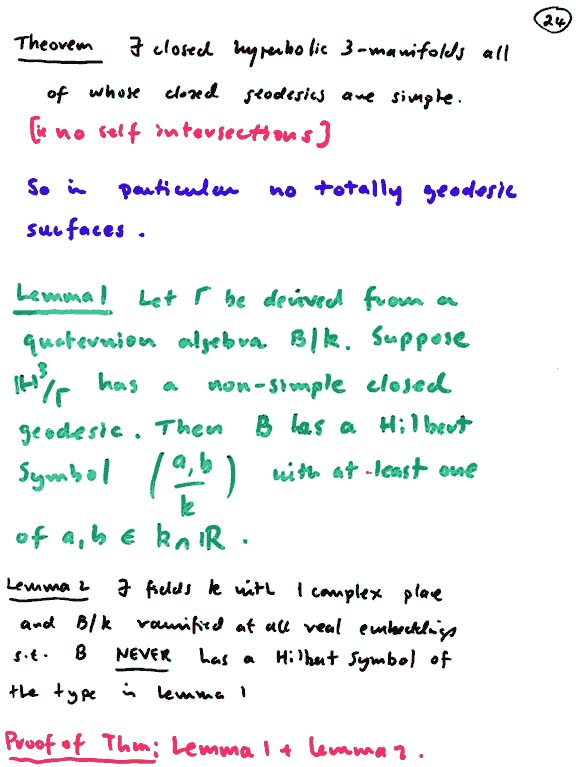 24
Theorem ∃ closed hyperbolic 3-manifolds all
of whose closed geodesics are simple.
[ie no self intersections]
So in particular no totally geodesic
surfaces.
Lemma 1 Let Γ be derived from a
quaternion algebra B/k. Suppose
ℍ³/Γ has a non-simple closed
geodesic. Then B has a Hilbert
Symbol (a,b / k) with at-least one
of a,b ∈ k∩ℝ.
Lemma 2 ∃ fields k with 1 complex place
and B/k ramified at all real embeddings
s.t. B NEVER has a Hilbert Symbol of
the type in lemma 1
Proof of Thm: Lemma 1 + Lemma 2.